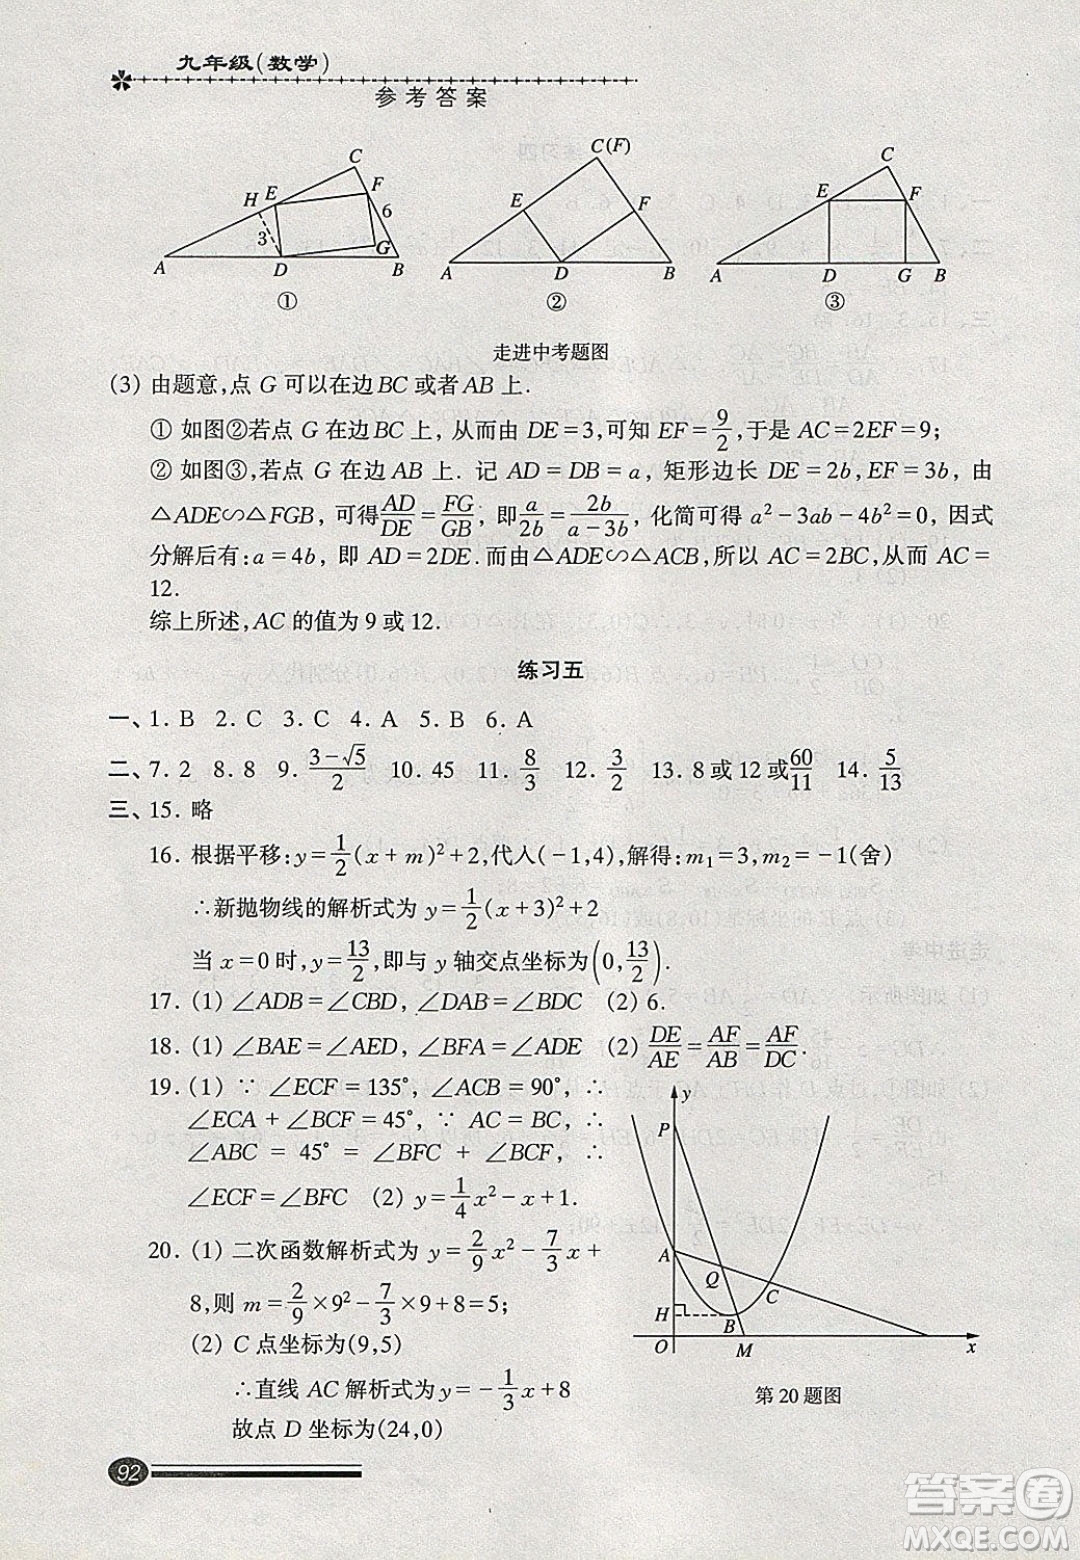 九年级(数学)
参考答案
C
H E F 6 3 G A D B
①
C(F)
E F A D B
②
C
E F A D G B
③
走进中考题图
(3) 由题意,点 G 可以在边BC 或者AB 上.
① 如图②若点 G 在边BC 上, 从而由 DE=3,可知 EF=9/2,于是 AC=2EF=9;
② 如图③,若点 G 在边 AB 上. 记 AD=DB=a, 矩形边长 DE=2b,EF=3b, 由
△ADE∽△FGB, 可得AD/DE=FG/GB, 即a/2b=2b/(a-3b), 化简可得 a²-3ab-4b²=0, 因式
分解后有:a=4b, 即 AD=2DE.而由△ADE∽△ACB,所以 AC=2BC,从而 AC=
12.
综上所述,AC 的值为 9 或 12.
练习五
一、1. B 2. C 3. C 4. A 5. B 6. A
二、7. 2 8. 8 9. (3-√5)/2 10. 45 11. 8/3 12. 3/2 13. 8 或 12 或60/11 14. 5/13
三、15. 略
16. 根据平移:y=1/2(x+m)²+2,代入(-1,4),解得:m₁=3,m₂=-1(舍)
∴新抛物线的解析式为 y=1/2(x+3)²+2
当 x=0时,y=13/2,即与 y 轴交点坐标为(0,13/2).
17. (1) ∠ADB=∠CBD,∠DAB=∠BDC (2) 6.
18. (1) ∠BAE=∠AED,∠BFA=∠ADE (2) DE/AE=AF/AB=AF/DC.
19. (1) ∵ ∠ECF=135°,∠ACB=90°, ∴
∠ECA+∠BCF=45°, ∵ AC=BC, ∴
∠ABC = 45° = ∠BFC + ∠BCF, ∴
∠ECF=∠BFC (2) y=1/4x²-x+1.
20. (1) 二次函数解析式为 y=2/9x²-7/3x+
8,则 m=2/9×9²-7/3×9+8=5;
(2) C 点坐标为(9,5)
∴直线 AC 解析式为y=-1/3x+8
故点 D 坐标为(24,0)
y
P
A
Q C
H B
O M x
第20题图
92
答案圈
MXQE.COM